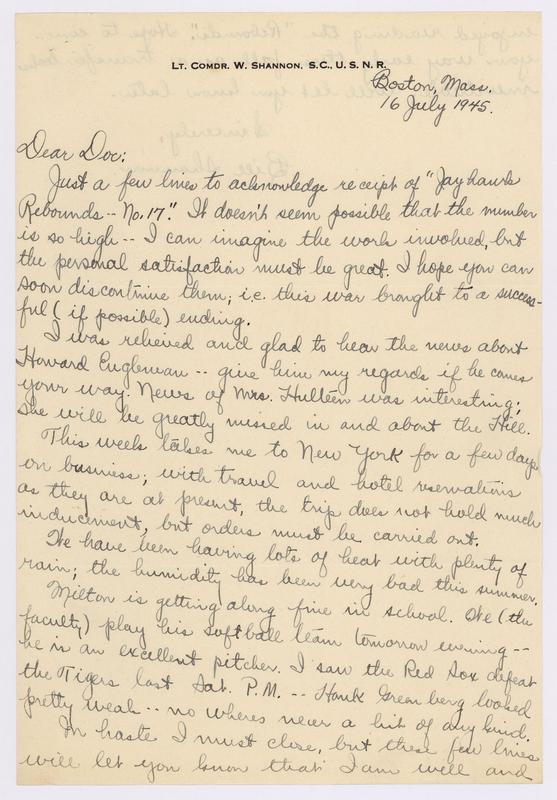 Lt. Comdr. W. Shannon, S.C., U.S.N.R.
Boston, Mass.
16 July 1945.
Dear Doc:
Just a few lines to acknowledge receipt of "Jayhawk
Rebounds -- No. 17." It doesn't seem possible that the number
is so high -- I can imagine the work involved, but
the personal satisfaction must be great. I hope you can
soon discontinue them; i.e. this war brought to a success-
ful (if possible) ending.
I was relieved and glad to hear the news about
Howard Engleman -- give him my regards if he comes
your way. News of Mrs. Hulteen was interesting;
she will be greatly missed in and about the Hill.
This week takes me to New York for a few days
on business; with travel and hotel reservations
as they are at present, the trip does not hold much
inducement, but orders must be carried out.
We have been having lots of heat with plenty of
rain; the humidity has been very bad this summer.
Milton is getting along fine in school. We (the
faculty) play his softball team tomorrow evening --
he is an excellent pitcher. I saw the Red Sox defeat
the Tigers last Sat. P.M. -- Hank Greenberg looked
pretty weak -- no wheres near a hit of any kind.
In haste I must close, but these few lines
will let you know that I am well and